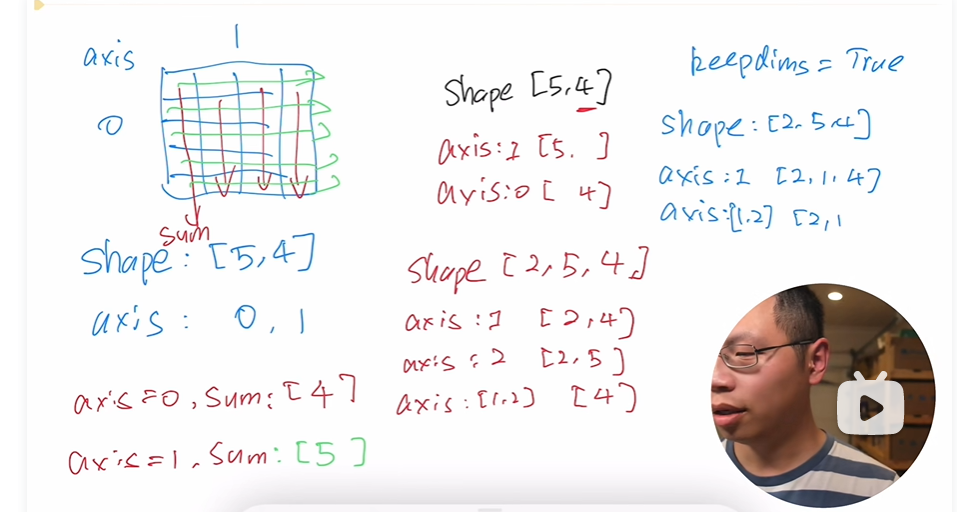 axis 1
0
sum
shape: [5,4]
axis: 0, 1
axis=0, sum: [4]
axis=1, sum: [5]
shape [5,4]
axis:1 [5. ]
axis:0 [ 4]
shape [2,5,4]
axis:1 [2,4]
axis:2 [2,5]
axis:[1,2] [4]
keepdims = True
shape: [2,5,4]
axis:1 [2,1,4]
axis:[1,2] [2,1